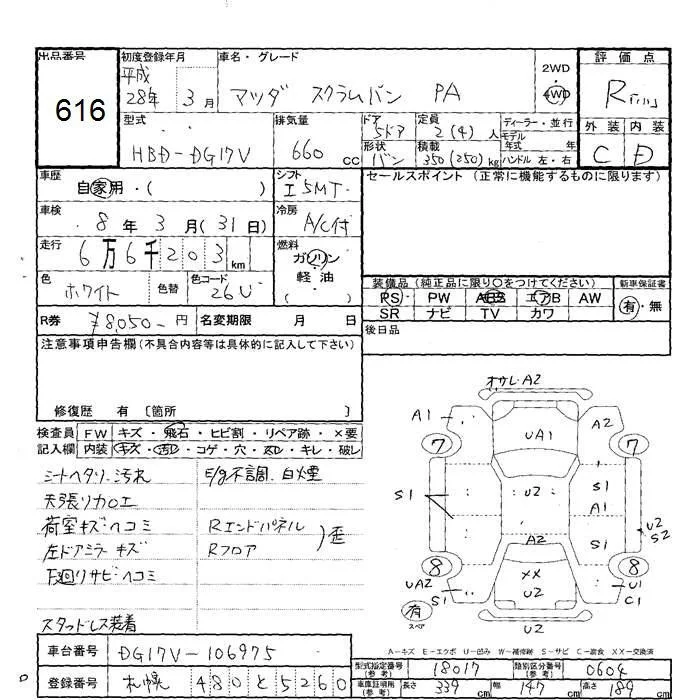 出品番号
616
初度登録年月
平成
28年 3月
車名・グレード
マツダ スクラムバン PA
2WD
・
4WD
評価点
R
外装 内装
C D
型式
HBD-DG17V
排気量
660 cc
ドア
5ドア
形状
バン
定員
2(4)人
積載
350(250)kg
ディーラー・並行
モデル
年式 年
ハンドル 左・右
車歴
自家用・( )
シフト
I 5MT
セールスポイント (正常に機能するものに限ります)
車検
8年 3月(31日)
冷房
A/C付
走行
6万6千203km
燃料
ガソリン
・
軽油
色
ホワイト
色替
色コード
26U
装備品(純正品に限り○をつけてください)
PS PW ABS エアB AW
SR ナビ TV カワ
新車保証書
有・無
R券 ¥8,050-円
名変期限 月 日
後日品
注意事項申告欄(不具合内容等は具体的に記入して下さい)
修復歴 有〔箇所 〕
検査員
記入欄
FW キズ・飛石・ヒビ割・リペア跡・×要
内装 キズ・汚レ・コゲ・穴・スレ・キレ・破レ
シートヘタリ、汚れ
天張りカロエ
荷室キズ・ヘコミ
左ドアミラーキズ
下廻りサビ・ヘコミ
スタッドレス装着
E/g不調、白煙
Rエンドパネル
Rフロア
)歪
オサレ・A2
A1
A2
7
7
UA1
S1
U2
S1
A1
S1
U2
S2
A2
8
8
××
U2
UA2
S1
U1
C1
有
スペア
U2
A-キズ E-エクボ U-凹み W-補修跡 S-サビ C-腐食 XX-交換済
車台番号 DG17V-106975
登録番号 札幌 480 と 5260
型式指定番号
(参考)
18017
類別区分番号
(参考)
0604
車庫証明用
(参考)
長さ 339 cm 幅 147 cm 高さ 189 cm